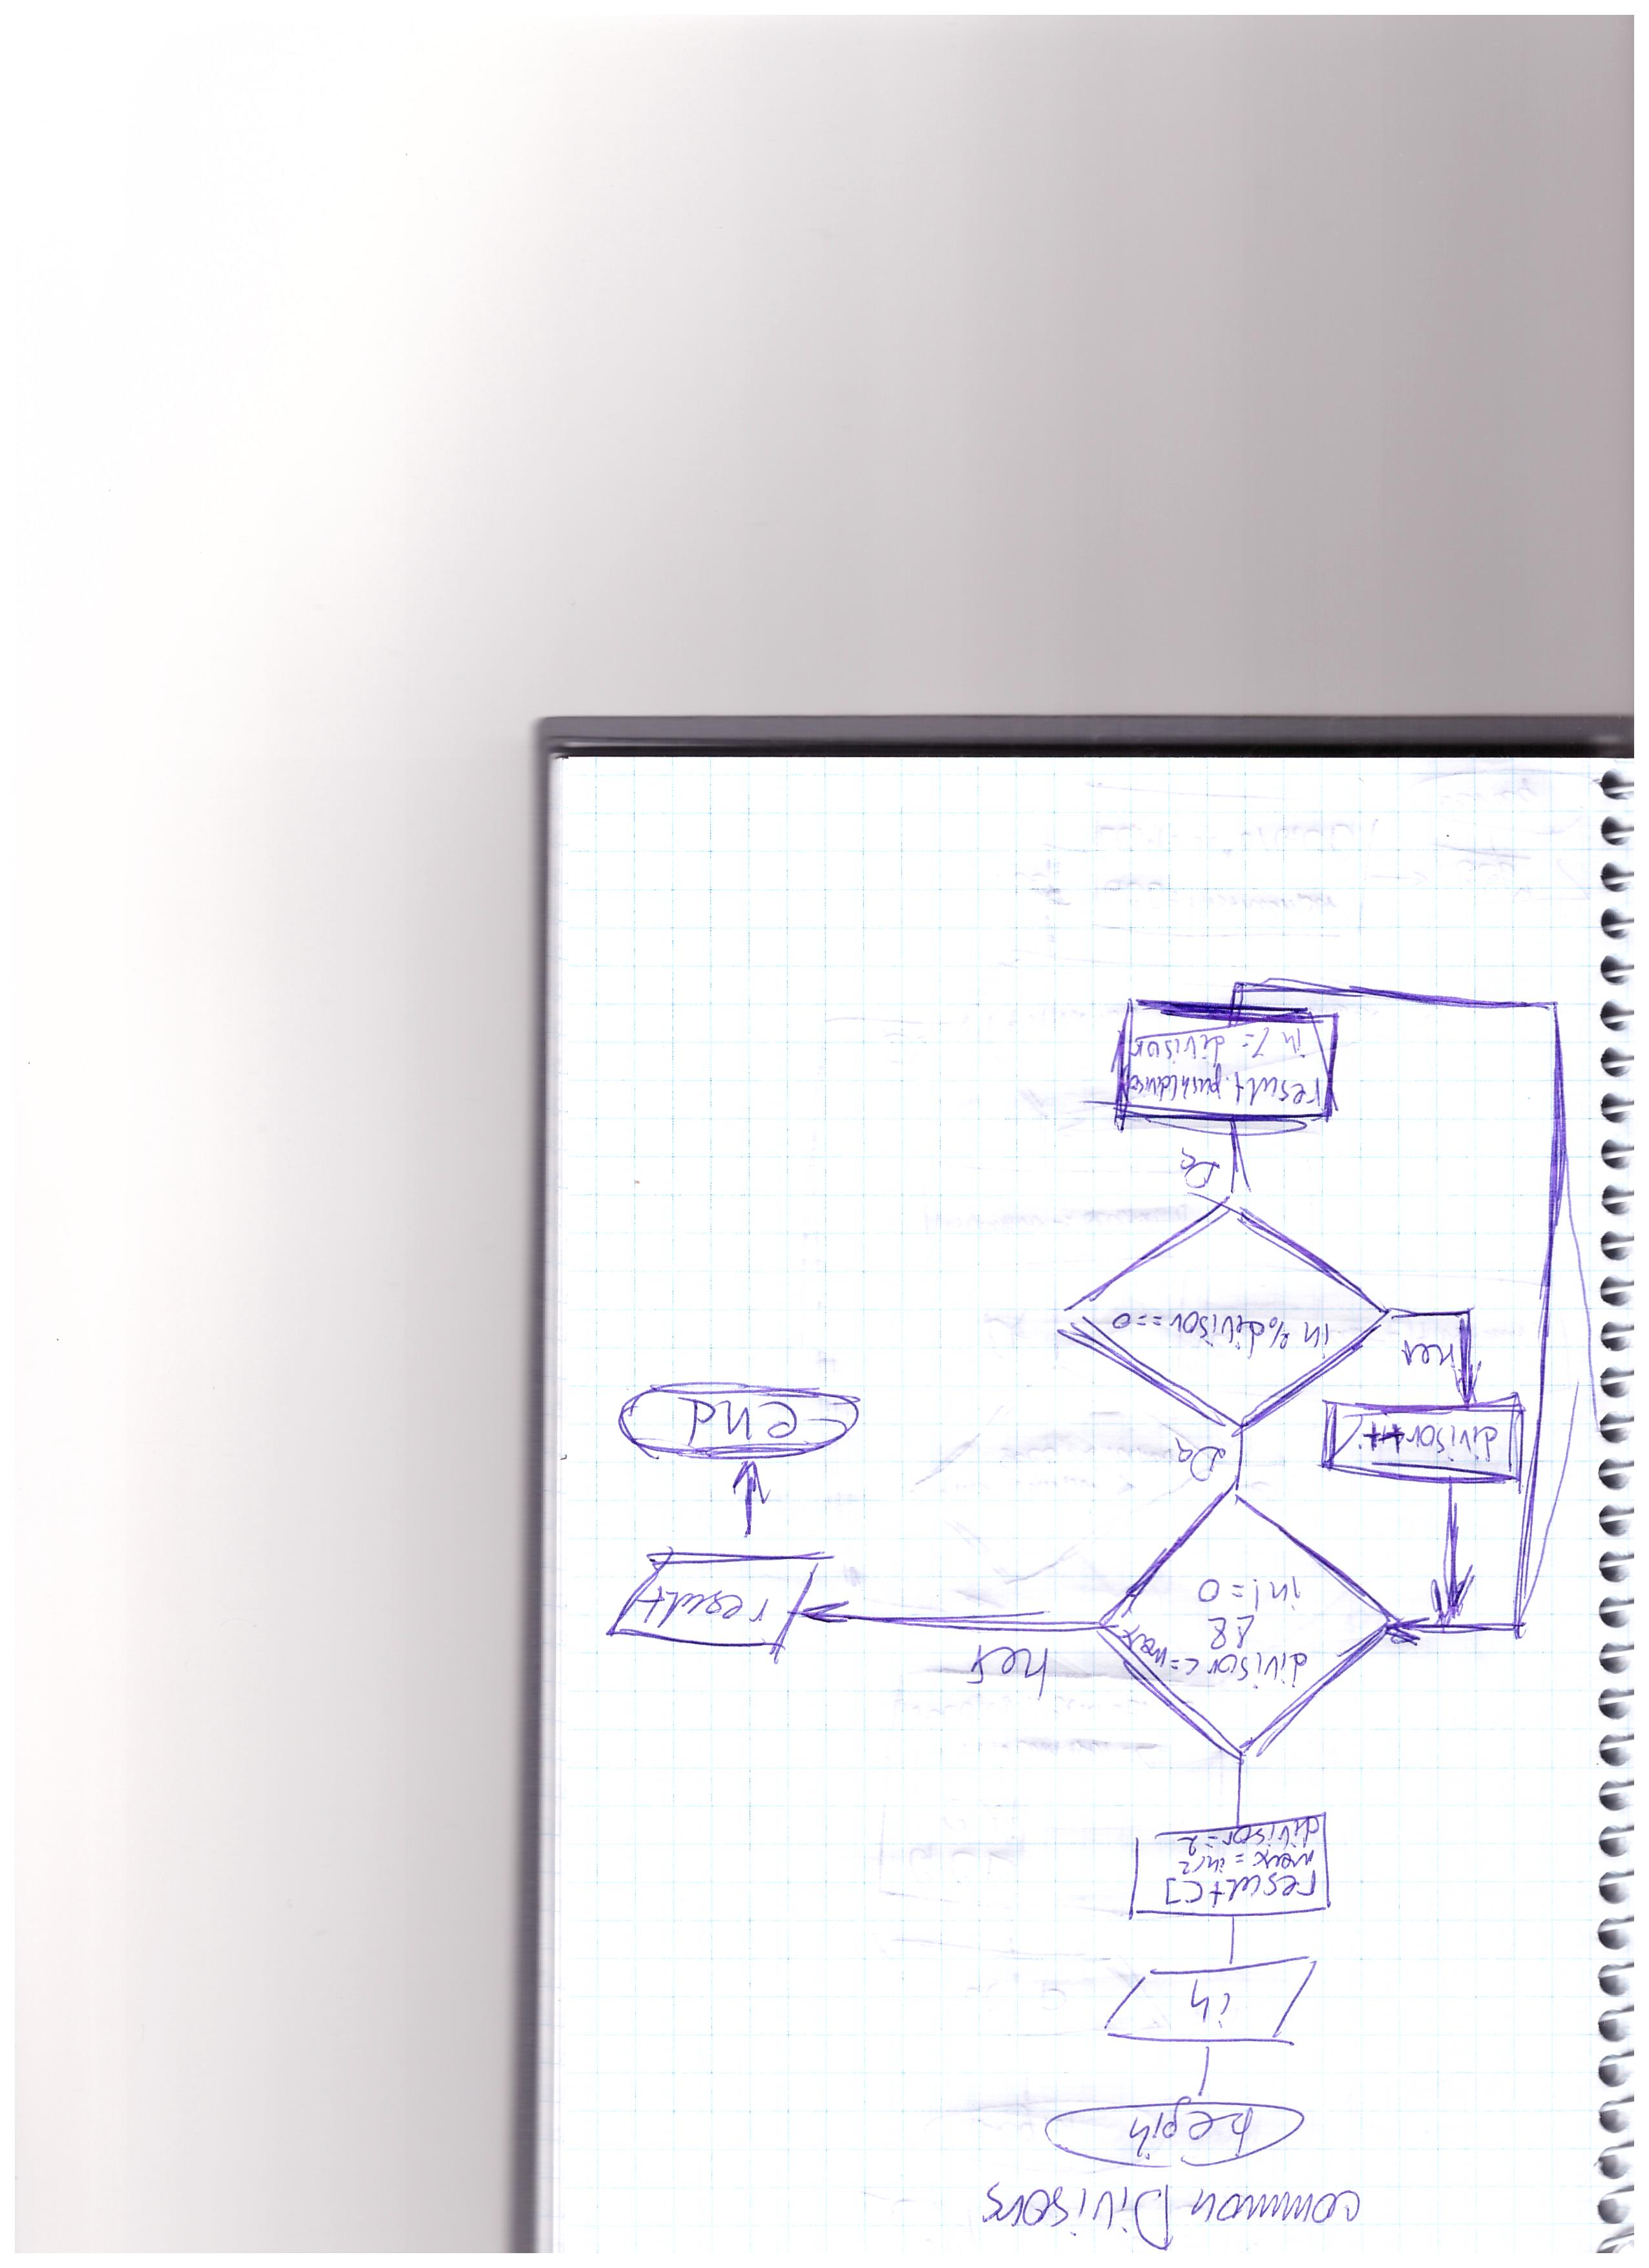 common Divisors
begin
in
result []
max = in/2
divisor = 2
divisor <= max
&&
in != 0
нет
result
Da
divisor++
end
нет
in % divisor == 0
Da
result.push(divisor
in /= divisor